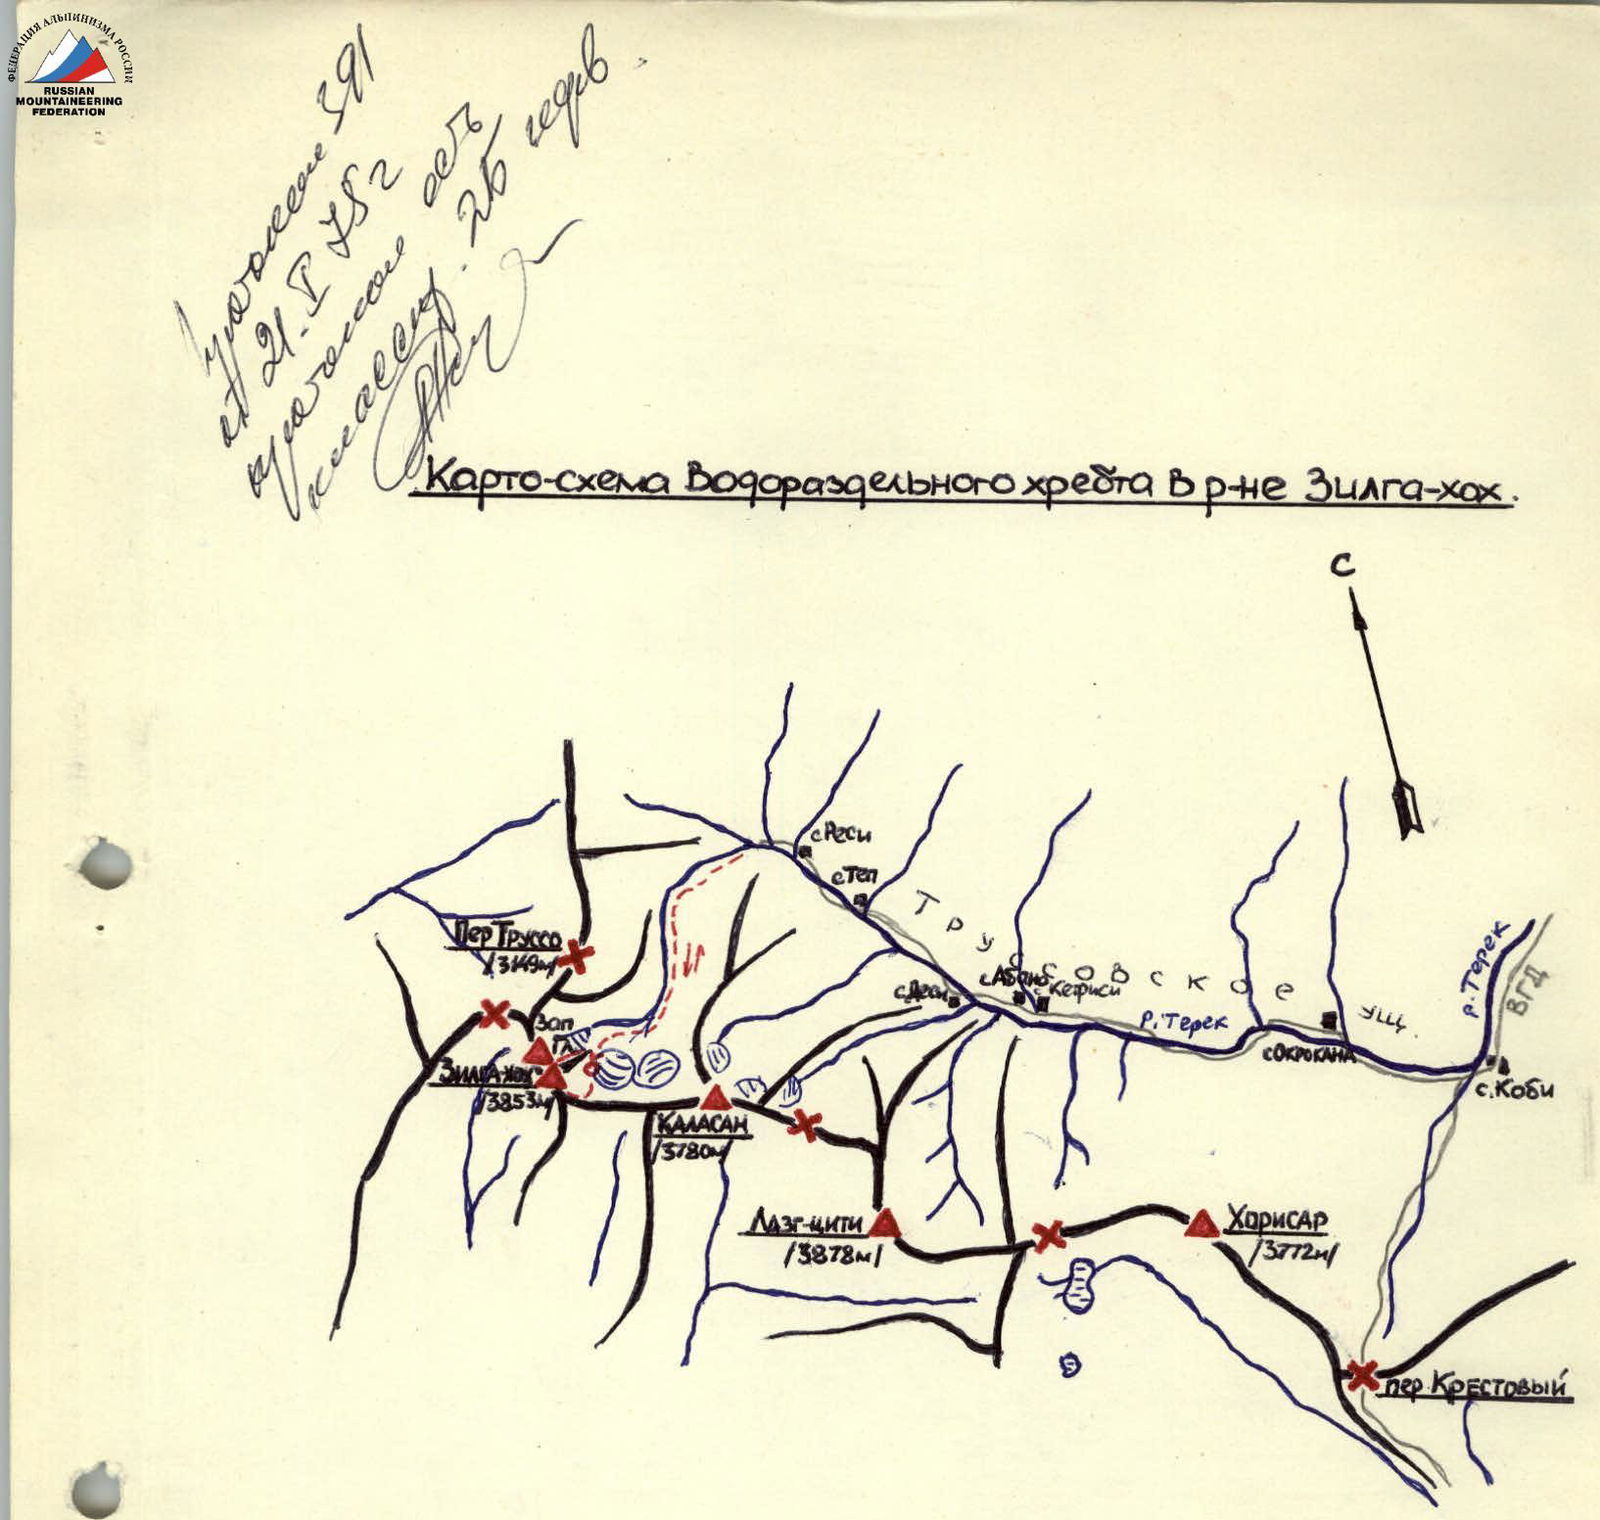 ФЕДЕРАЦИЯ АЛЬПИНИЗМА РОССИИ
RUSSIAN
MOUNTAINEERING
FEDERATION
протокол 391
от 21. V 75 г
протокол
2Б
Карто-схема Водораздельного хребта в р-не Зилга-хох.
С
с Реси
с Теп
Трусовское ущ.
Пер Труссо
/3149м/
с Деси
с Абано
с Кетриси
р. Терек
р. Терек
ВГД
с Окрокана
с. Коби
Зап
Гл
Зилга-хох
/3853м/
Каласан
/3780м/
Лазг-цити
/3878м/
Хорисар
/3772м/
пер. Крестовый